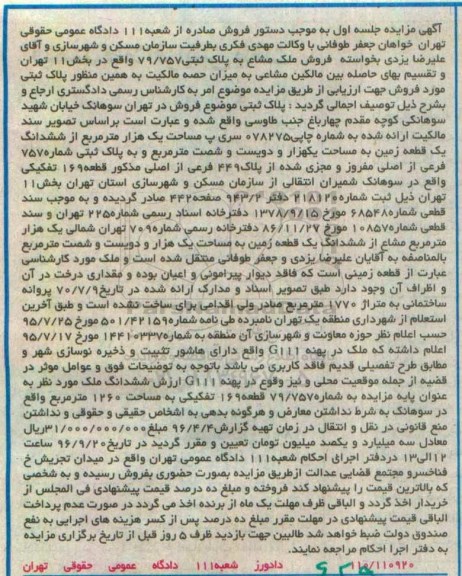 آگهی مزایده جلسه اول به موجب دستور فروش صادره از شعبه۱۱۱ دادگاه عمومی حقوقی
تهران خواهان جعفر طوفانی با وکالت مهدی فکری بطرفیت سازمان مسکن و شهرسازی و آقای
علیرضا یزدی بخواسته فروش ملک مشاع به پلاک ثبتی۷۹/۷۵۷ واقع در بخش۱۱ تهران
و تقسیم بهای حاصله بین مالکین مشاعی به میزان حصه مالکیت به همین منظور پلاک ثبتی
مورد فروش جهت ارزیابی از طریق مزایده موضوع امر به کارشناس رسمی دادگستری ارجاع و
بشرح ذیل توصیف اجمالی گردید : پلاک ثبتی موضوع فروش در تهران سوهانک خیابان شهید
سوهانکی کوچه مقدم چهارباغ جنب طاوسی واقع شده و عبارت است براساس تصویر سند
مالکیت ارائه شده به شماره چاپی۰۷۸۲۷۵ سری پ مساحت یک هزار مترمربع از ششدانگ
یک قطعه زمین به مساحت یکهزار و دویست و شصت مترمربع و به پلاک ثبتی شماره۷۵۷
فرعی از اصلی مفروز و مجزی شده از پلاک۴۴۹ فرعی از اصلی مذکور قطعه۱۶۹ تفکیکی
واقع در سوهانک شمیران انتقالی از سازمان مسکن و شهرسازی استان تهران بخش۱۱
تهران ذیل ثبت شماره۲۱۸۱۲۰ دفتر ۹۴۳/۲ صفحه۴۴۲ صادر گردیده و به موجب سند
قطعی شماره۶۸۵۴۸ مورخ ۱۳۷۸/۹/۱۵ دفترخانه اسناد رسمی شماره۲۲۵ تهران و سند
قطعی شماره۱۰۸۵۷ مورخ ۸۶/۱۱/۲۷ دفترخانه رسمی شماره۷۰۹ تهران شمالی یک هزار
مترمربع مشاع از ششدانگ یک قطعه زمین به مساحت یک هزار و دویست و شصت مترمربع
بالمناصفه به آقایان علیرضا یزدی و جعفر طوفانی منتقل شده است و ملک مورد کارشناسی
عبارت از قطعه زمینی است که فاقد دیوار پیرامونی و اعیان بوده و مقداری درخت در آن
و اظراف آن وجود دارد طبق تصویر اسناد و مدارک ارائه شده در تاریخ۷۰/۷/۹ پروانه
ساختمانی به متراژ ۱۷۷۰ مترمربع صادر ولی اقدامی برای ساخت نشده است و طبق آخرین
استعلام از شهرداری منطقه یک تهران نامبرده طی نامه شماره۵۰۱/۴۲۱۵۹ مورخ ۹۵/۷/۲۵
حسب اعلام نظر حوزه معاونت و شهرسازی آن منطقه به شماره۱۴۴۱۰۳۳۷ مورخ ۹۵/۷/۱۷
اعلام داشته که ملک در پهنه G۱۱۱ واقع دارای هاشور تثبیت و ذخیره نوسازی شهر و
مطابق طرح تفصیلی قدیم فاقد کاربری می باشد باتوجه به توضیحات فوق و عوامل موثر در
قضیه از جمله موقعیت محلی و نیز وقوع در پهنه G۱۱۱ ارزش ششدانگ ملک مورد نظر به
عنوان پایه مزایده به شماره۷۹/۷۵۷ قطعه۱۶۹ تفکیکی به مساحت ۱۲۶۰ مترمربع واقع
در سوهانک به شرط نداشتن معارض و هرگونه بدهی به اشخاص حقیقی و حقوقی و نداشتن
منع قانونی در نقل و انتقال در زمان تهیه گزارش۹۶/۴/۴ مبلغ ۳۱/۰۰۰/۰۰۰/۰۰۰ریال
معادل سه میلیارد و یکصد میلیون تومان تعیین و مقرر گردید در تاریخ۹۶/۹/۲۰ ساعت
۱۲الی۱۳ دردفتر اجرای احکام شعبه۱۱۱ دادگاه عمومی تهران واقع در میدان تجریش خ
فناخسرو مجتمع قضایی عدالت ازطریق مزایده بصورت حضوری بفروش رسیده و به شخصی
که بالاترین قیمت را پیشنهاد کند فروخته و مبلغ ده درصد قیمت پیشنهادی فی المجلس از
خریدار اخذ گردد و الباقی ظرف مهلت یک ماه از برنده اخذ می گردد در صورت عدم پرداخت
الباقی قیمت پیشنهادی در مهلت مقرر مبلغ ده درصد پس از کسر هزینه های اجرایی به نفع
صندوق دولت ضبط خواهد شد طالبین جهت بازدید ظرف ۵ روز قبل از تاریخ برگزاری مزایده
به دفتر اجرا احکام مراجعه نمایند.
۱۱۰/۱۱۰۹۲۰ دادورز شعبه۱۱۱ دادگاه عمومی حقوقی تهران